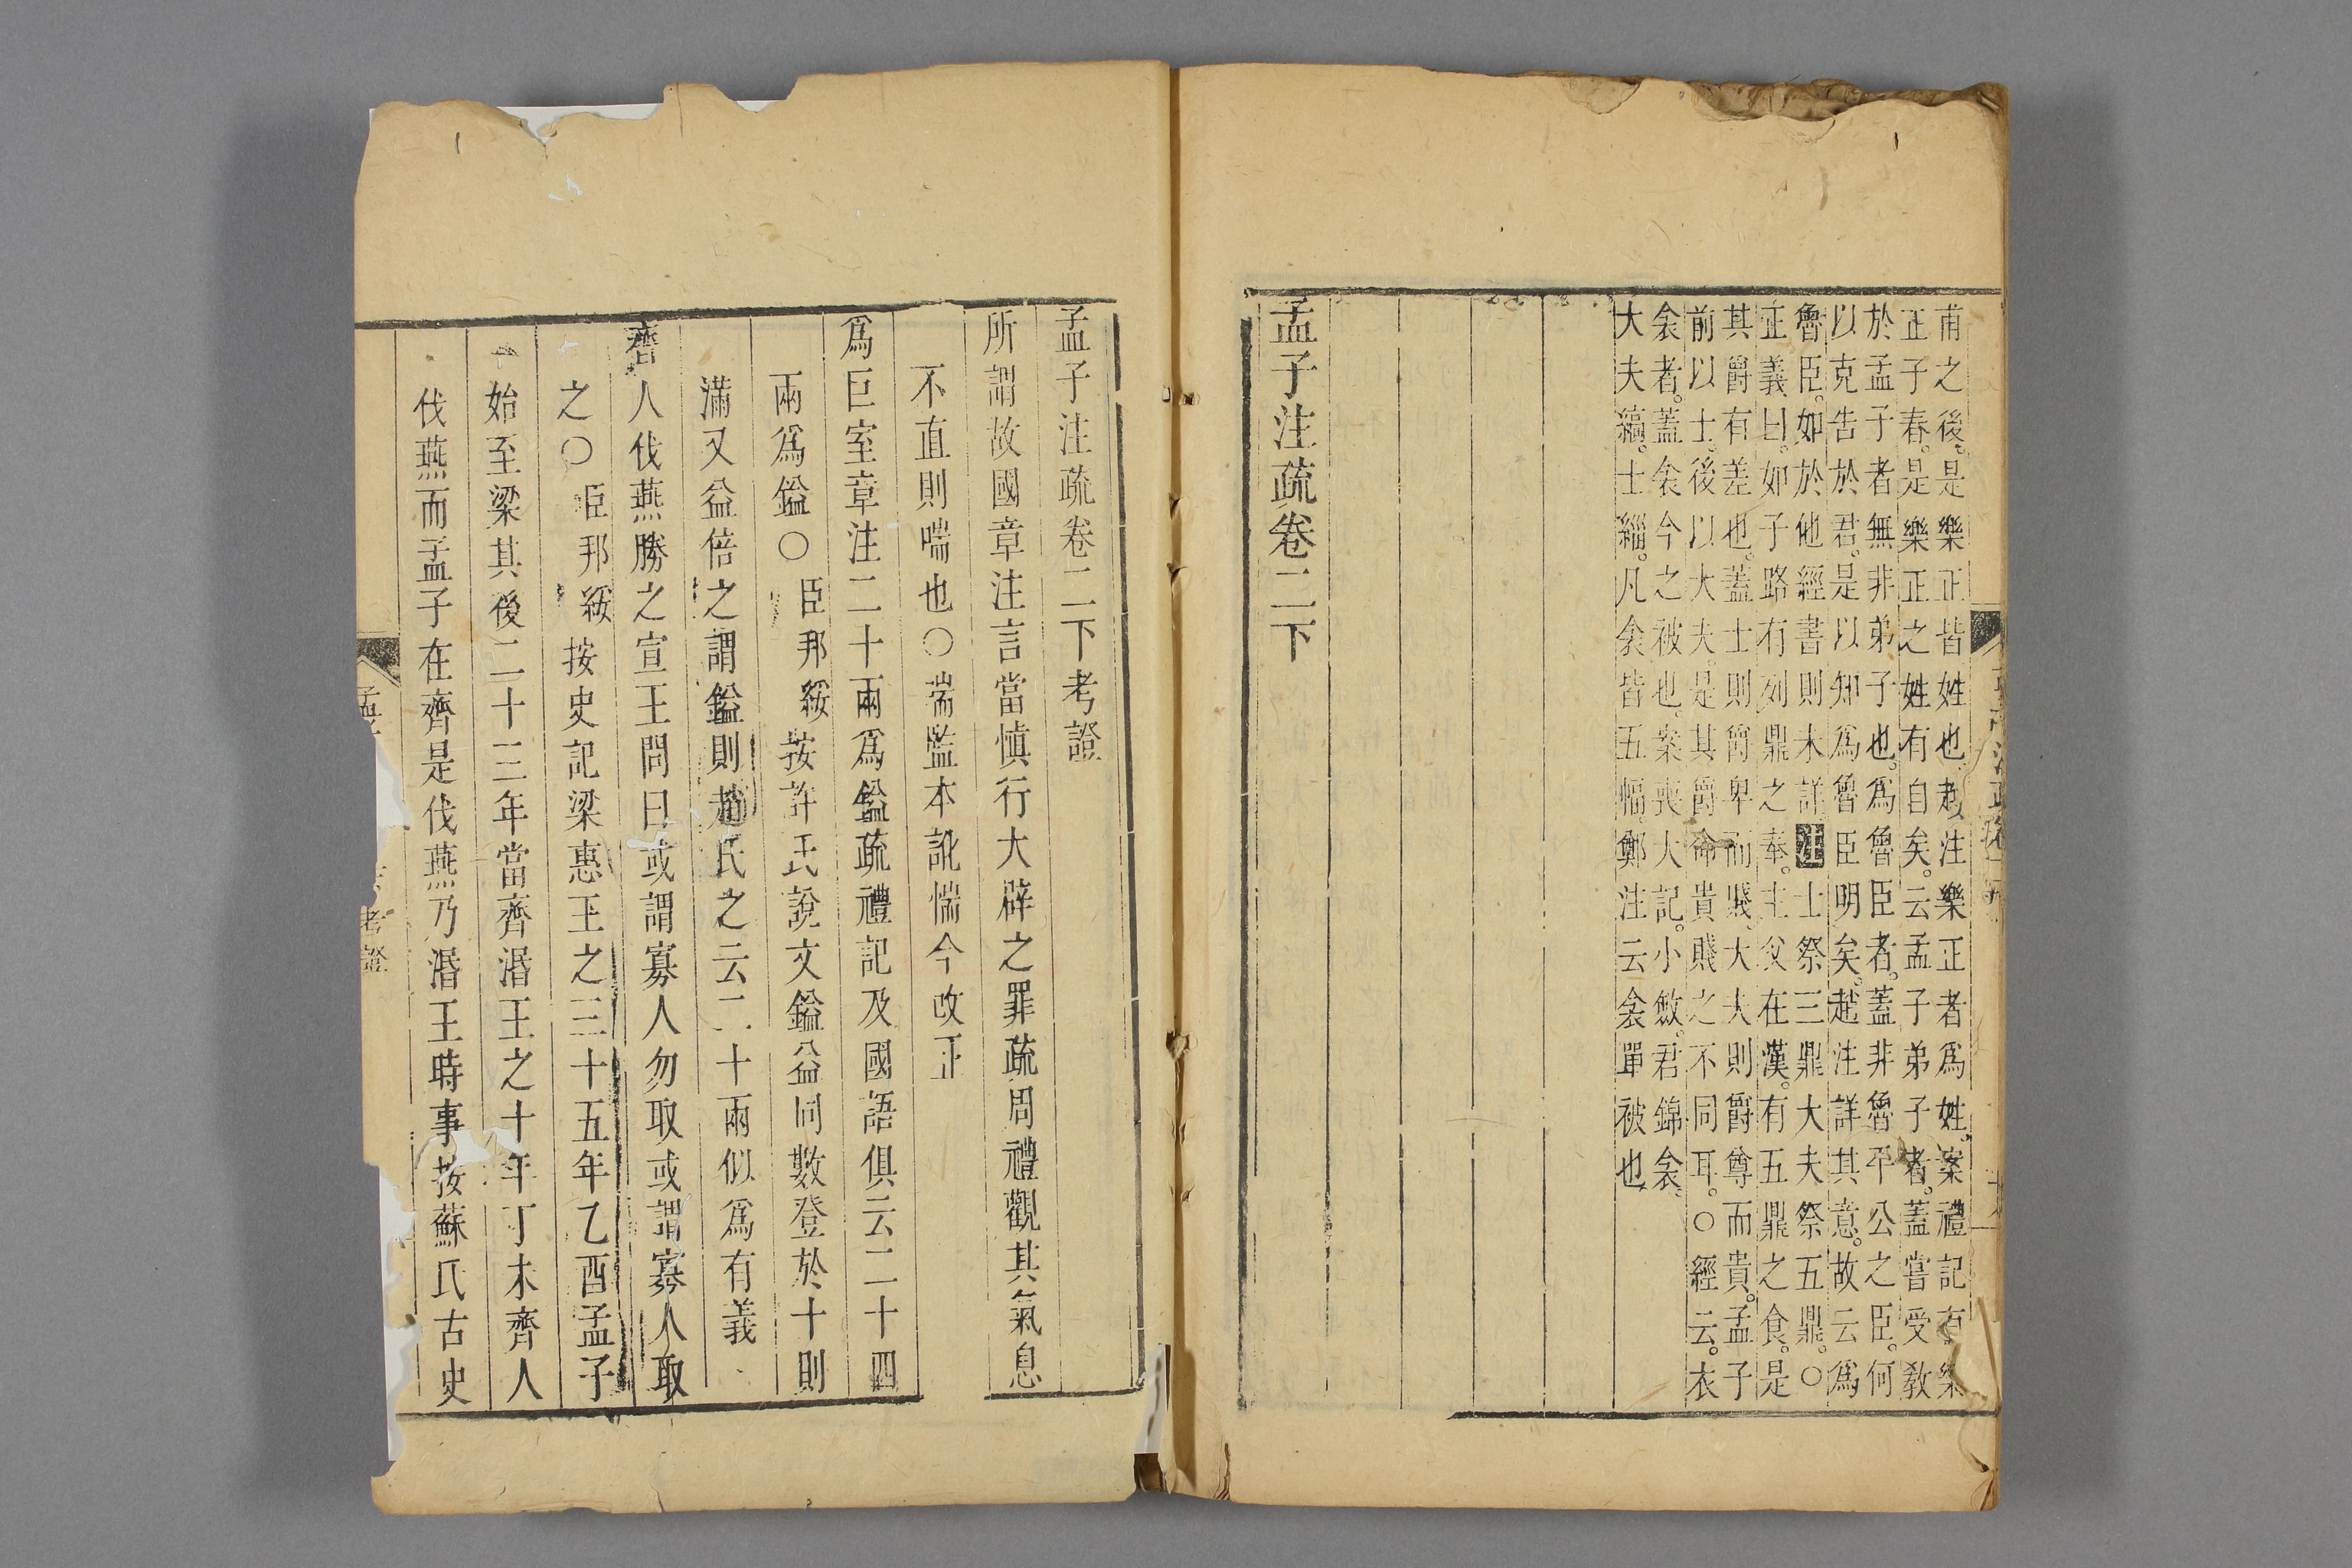 甫之後。是樂正皆姓也。趙注樂正者為姓。案禮記有樂
正子春。是樂正之姓有自矣。云孟子弟子者。蓋嘗受敎
於孟子者無非弟子也。為魯臣者。蓋非魯平公之臣。何
以克告於君。是以知為魯臣明矣。趙注詳其意。故云為
魯臣。如於他經書則未詳注士祭三鼎大夫祭五鼎。○
正義曰。如子路有列鼎之奉。主父在漢。有五鼎之食。是
其爵有差也。蓋士則爵卑而賤。大夫則爵尊而貴。孟子
前以士。後以大夫。是其爵命貴賤之不同耳。○經云。衣
衾者。蓋衾今之被也。案喪大記。小斂。君錦衾。
大夫縞。士緇。凡衾皆五幅。鄭注云衾單被也
孟子注疏卷二下
孟子注疏卷二下考證
所謂故國章注言當慎行大辟之罪疏周禮觀其氣息
不直則喘也○喘監本訛惴今改正
為巨室章注二十兩為鎰疏禮記及國語俱云二十四
兩為鎰○臣邦綏按許氏說文鎰益同數登於十則
滿又益倍之謂鎰則趙氏之云二十兩似為有義
齊人伐燕勝之宣王問曰或謂寡人勿取或謂寡人取
之○臣邦綏按史記梁惠王之三十五年乙酉孟子
始至梁其後二十三年當齊湣王之十年丁未齊人
伐燕而孟子在齊是伐燕乃湣王時事按蘇氏古史
考證